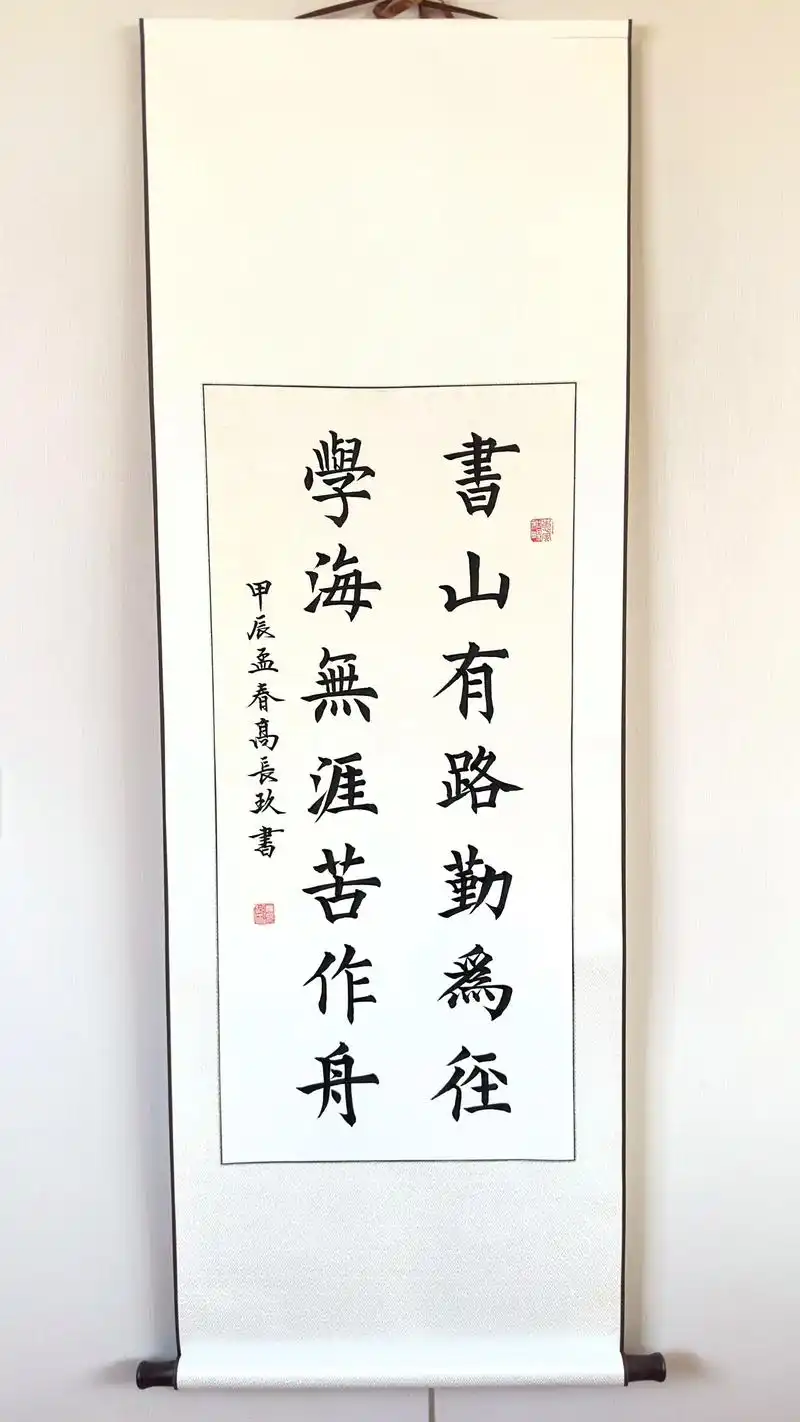 書山有路勤為徑
學海無涯苦作舟
甲辰孟春高長玖書